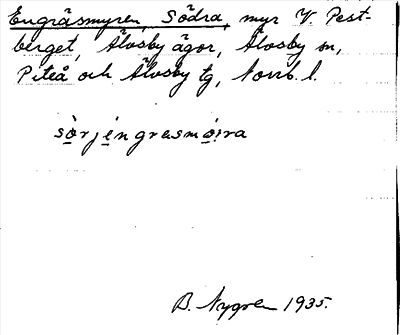 Engräsmyren, Södra, myr V. Pest-
berget, Älvsby ägor, Älvsby sn,
Piteå och Älvsby tg, Norrb. l.
sòrjèngrasmo̱i̱ra
B. Nygren 1935.